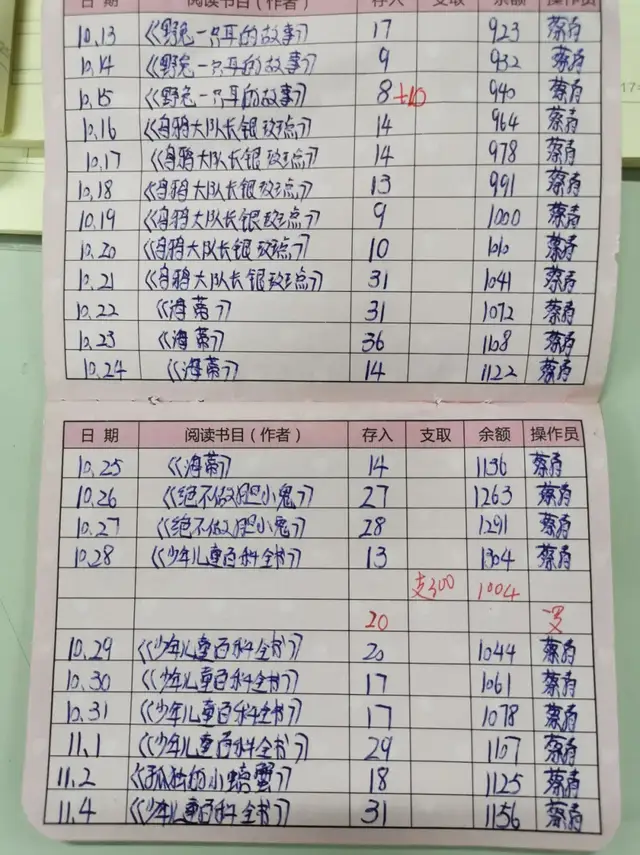 日 期 阅读书目（作者） 存入 支取 余额 操作员
10.13 《野兔一只耳的故事》 17 923
10.14 《野兔一只耳的故事》 9 932
10.15 《野兔一只耳的故事》 8+10 940
10.16 《乌鸦大队长银斑点》 14 964
10.17 《乌鸦大队长银斑点》 14 978
10.18 《乌鸦大队长银斑点》 13 991
10.19 《乌鸦大队长银斑点》 9 1000
10.20 《乌鸦大队长银斑点》 10 1010
10.21 《乌鸦大队长银斑点》 31 1041
10.22 《海蒂》 31 1072
10.23 《海蒂》 36 1108
10.24 《海蒂》 14 1122
日 期 阅读书目（作者） 存入 支取 余额 操作员
10.25 《海蒂》 14 1136
10.26 《绝不做胆小鬼》 27 1263
10.27 《绝不做胆小鬼》 28 1291
10.28 《少年儿童百科全书》 13 1304
支300 1004
20
10.29 《少年儿童百科全书》 20 1044
10.30 《少年儿童百科全书》 17 1061
10.31 《少年儿童百科全书》 17 1078
11.1 《少年儿童百科全书》 29 1107
11.2 《孤独的小螃蟹》 18 1125
11.4 《少年儿童百科全书》 31 1156